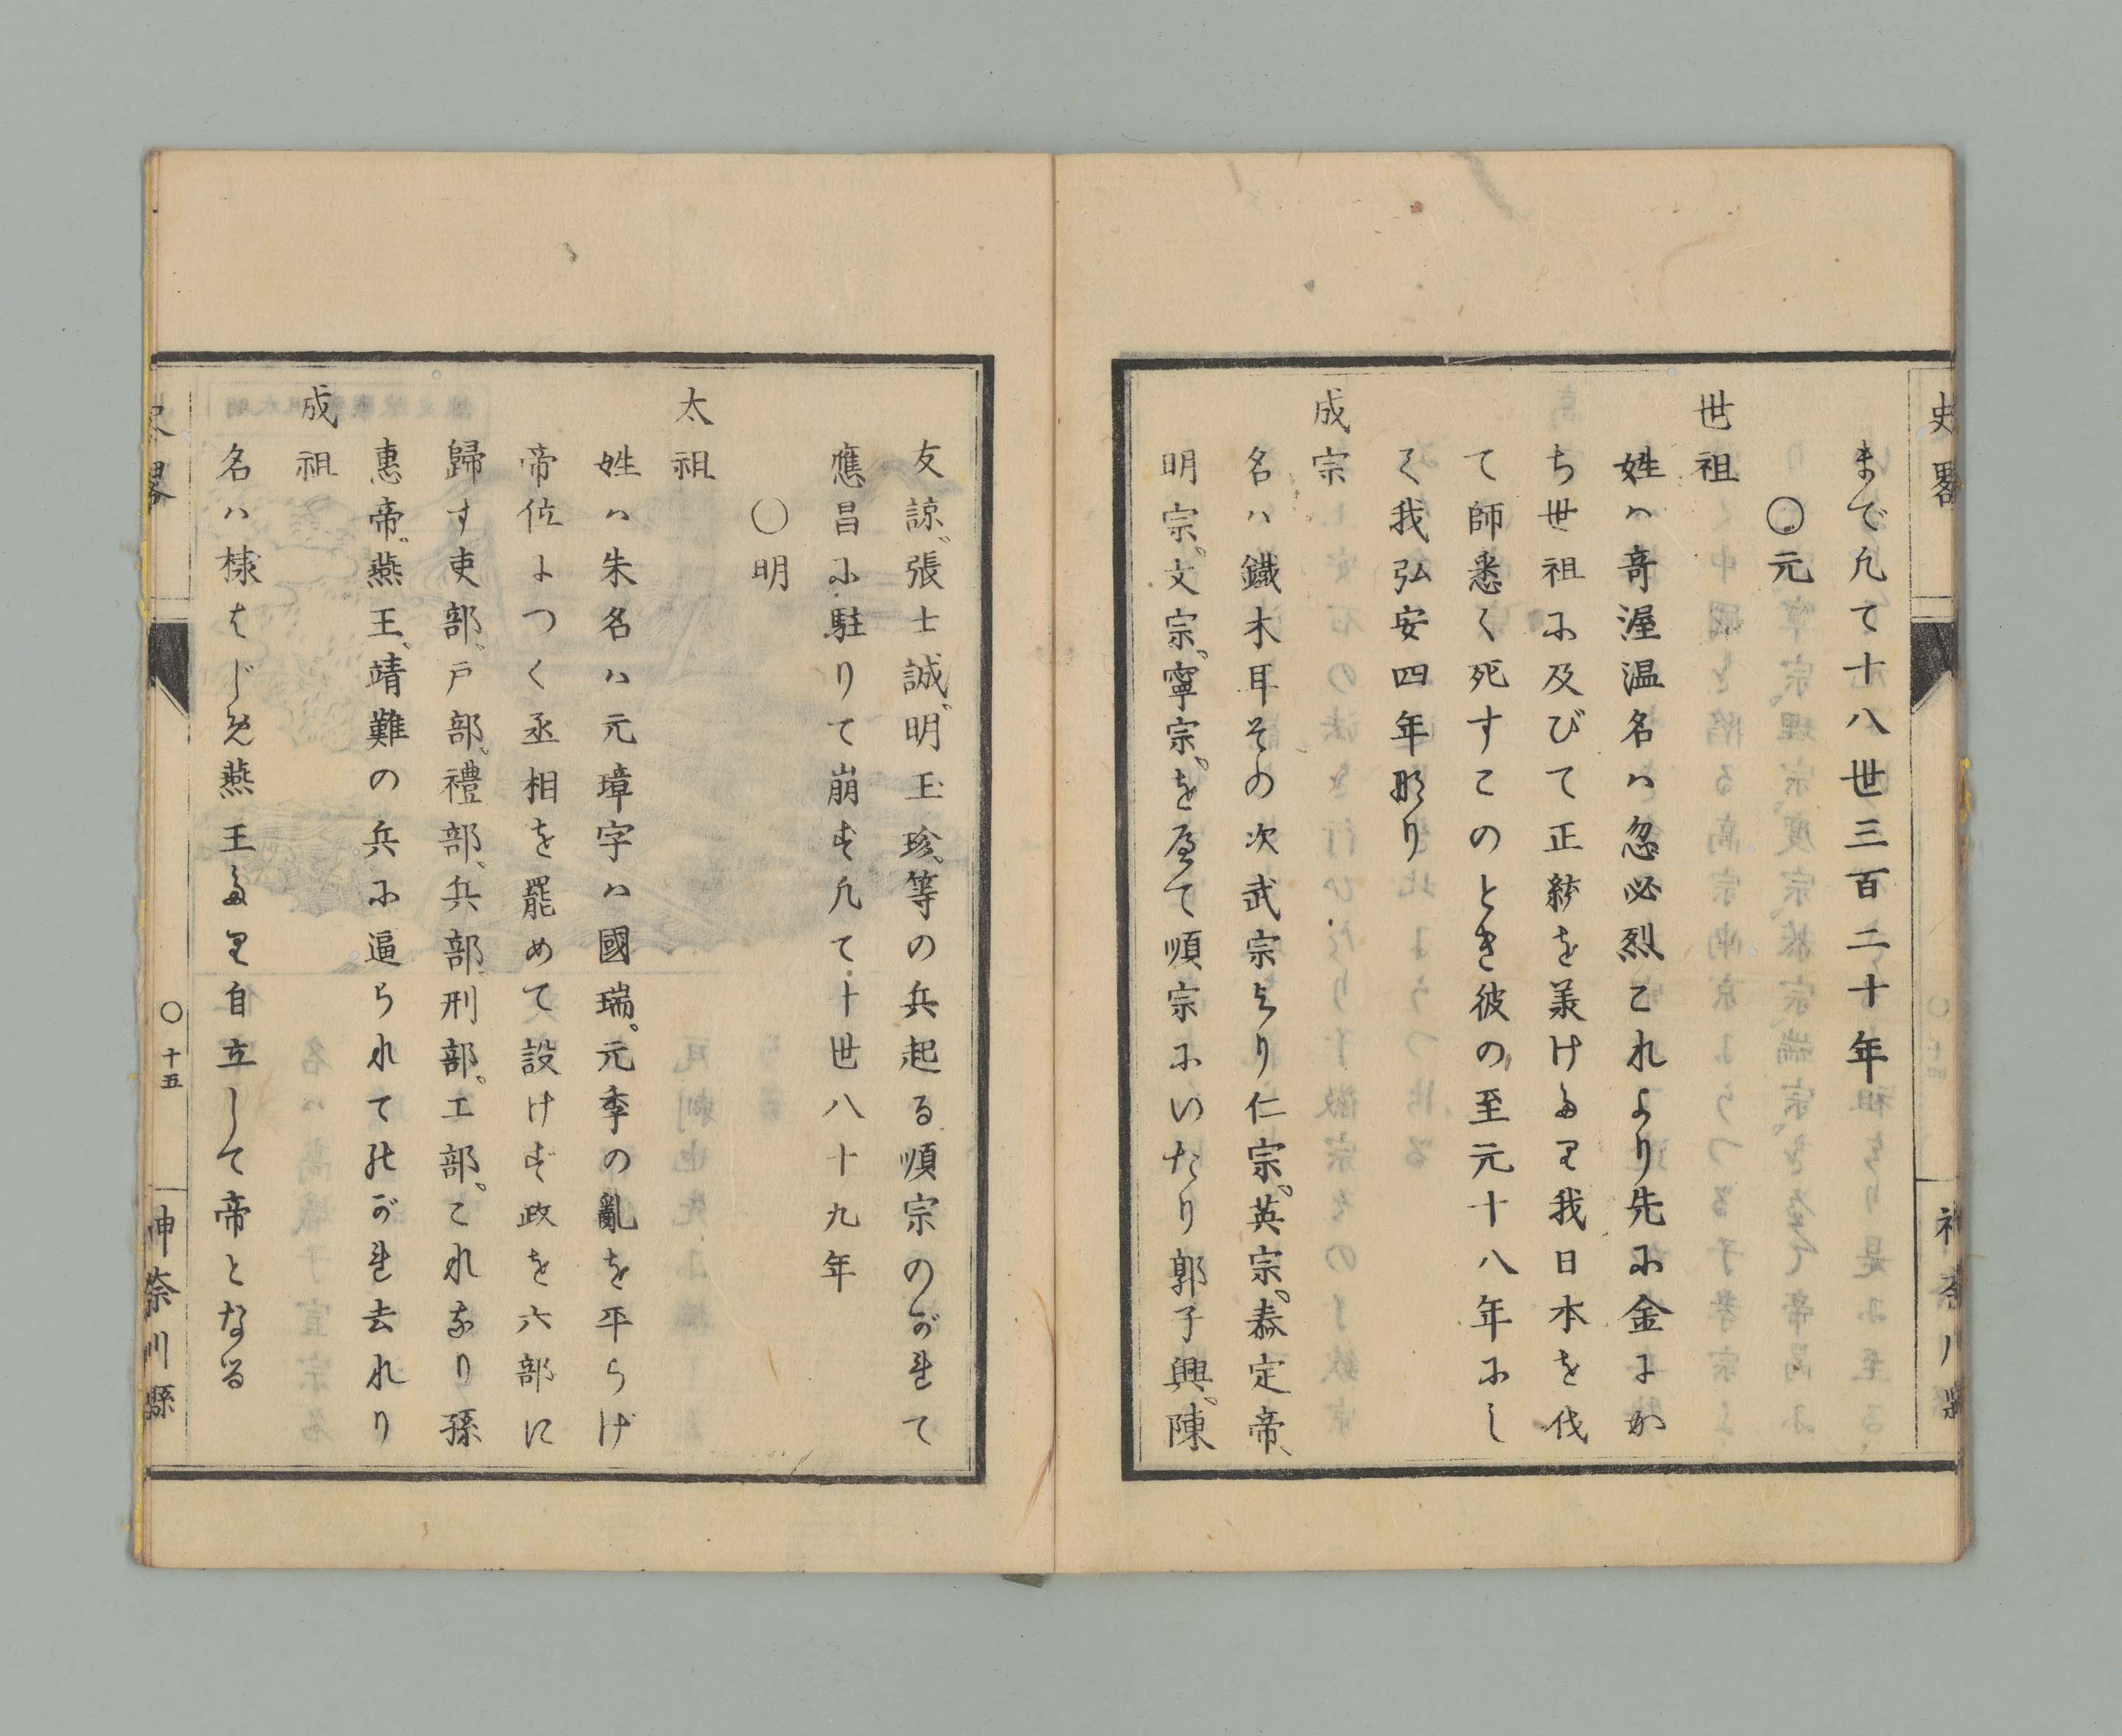 史畧
まで凡て十八世三百二十年
〇元
世祖
姓ハ奇渥温名ハ忽必烈これより先に金にか
ち世祖に及びて正統を義けたり我日本を伐
て師悉く死すこのとき彼の至元十八年にし
て我弘安四年なり
成宗
名ハ鐵木耳その次武宗より仁宗。英宗。泰定帝、
明宗。文宗。寧宗。を歴て順宗にいたり郭子興。陳
友諒、張士誠、明玉珍、等の兵起る順宗のがれて
應昌に駐りて崩ず凡て十世八十九年
〇明
太祖
姓ハ朱名ハ元璋字ハ國瑞。元季の亂を平らげ
帝位につく丞相を罷めて設けず政を六部に
歸す吏部、戸部、禮部、兵部、刑部。工部。これなり孫
惠帝、燕王、靖難の兵に逼られてのがれ去れり
成祖
名ハ棣はじめ燕王たり自立して帝となる
史畧
〇十五
神奈川縣